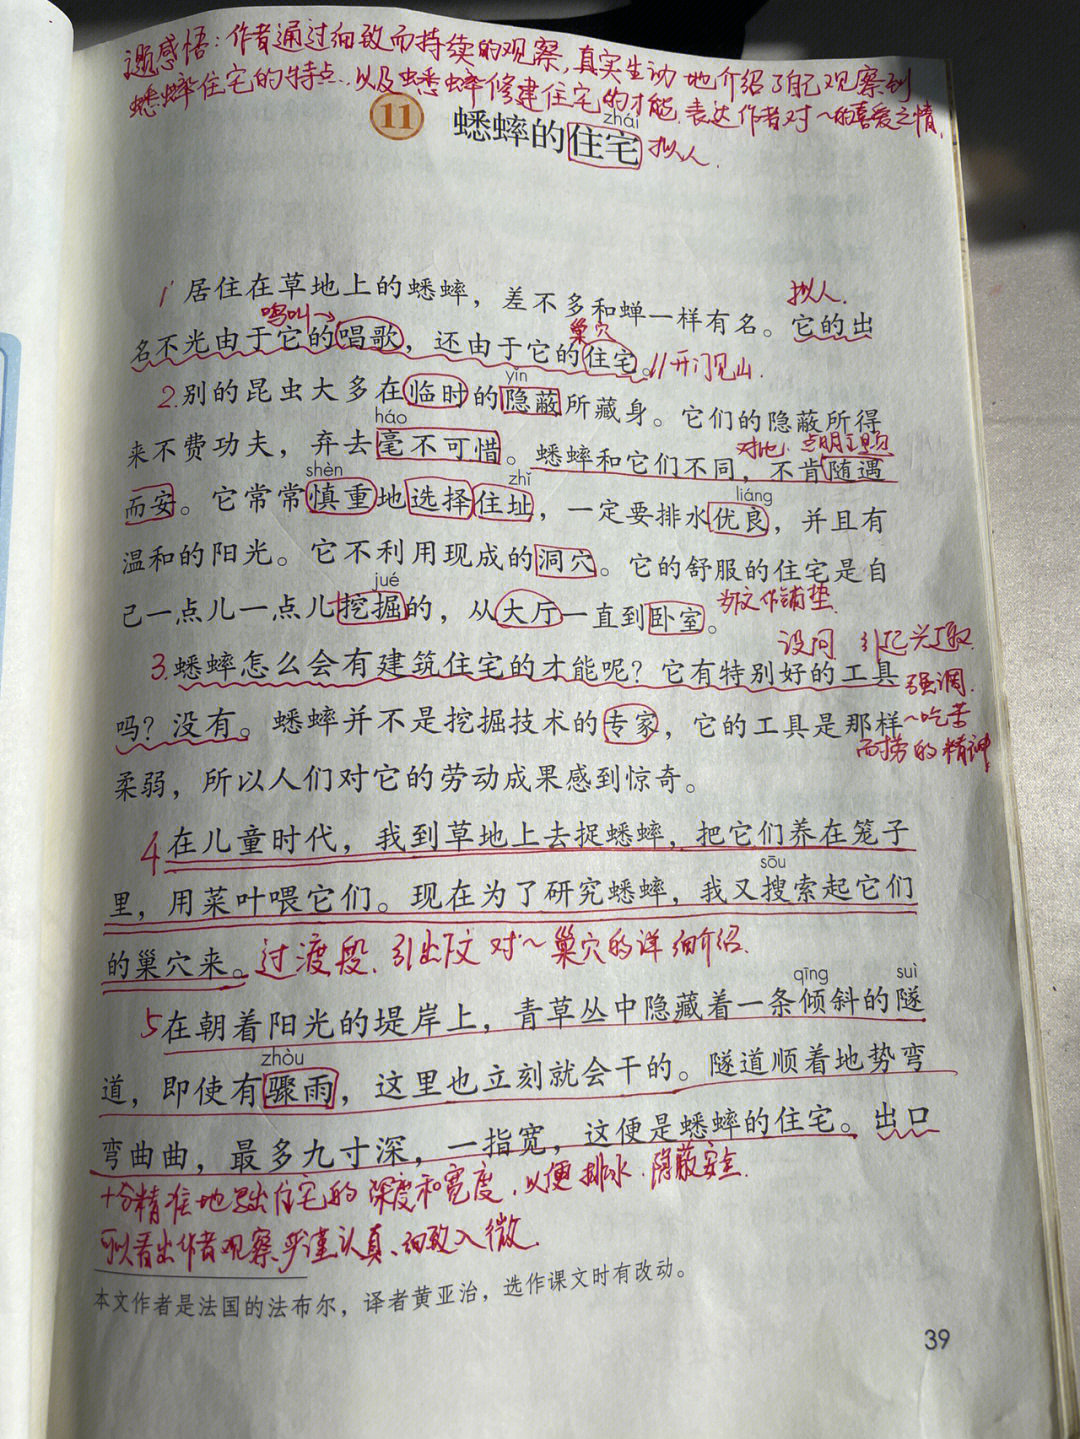 感悟：作者通过细致而持续的观察，真实生动地介绍了自己观察到
蟋蟀住宅的特点，以及蟋蟀修建住宅的才能，表达作者对～的喜爱之情，
11 蟋蟀的住宅 拟人.
zhái
1 居住在草地上的蟋蟀，差不多和蝉一样有名。它的出
拟人.
鸣叫→
巢穴
名不光由于它的唱歌，还由于它的住宅。//开门见山.
yǐn
2.别的昆虫大多在临时的隐蔽所藏身。它们的隐蔽所得
háo
来不费功夫，弃去毫不可惜。蟋蟀和它们不同，不肯随遇
对比.点明主题
shèn zhǐ liáng
而安。它常常慎重地选择住址，一定要排水优良，并且有
温和的阳光。它不利用现成的洞穴。它的舒服的住宅是自
jué
己一点儿一点儿挖掘的，从大厅一直到卧室。
为下文作铺垫.
设问 引起兴趣.
3.蟋蟀怎么会有建筑住宅的才能呢？它有特别好的工具
强调.
吗？没有。蟋蟀并不是挖掘技术的专家，它的工具是那样
～吃苦
而劳的精神
柔弱，所以人们对它的劳动成果感到惊奇。
4 在儿童时代，我到草地上去捉蟋蟀，把它们养在笼子
sōu
里，用菜叶喂它们。现在为了研究蟋蟀，我又搜索起它们
的巢穴来。过渡段.引出下文对～巢穴的详细介绍.
qīng suì
5 在朝着阳光的堤岸上，青草丛中隐藏着一条倾斜的隧
zhòu
道，即使有骤雨，这里也立刻就会干的。隧道顺着地势弯
弯曲曲，最多九寸深，一指宽，这便是蟋蟀的住宅。出口
十分精准地写出住宅的深度和宽度，以便排水.隐蔽安全.
可以看出作者观察严谨认真、细致入微.
本文作者是法国的法布尔，译者黄亚治，选作课文时有改动。
39